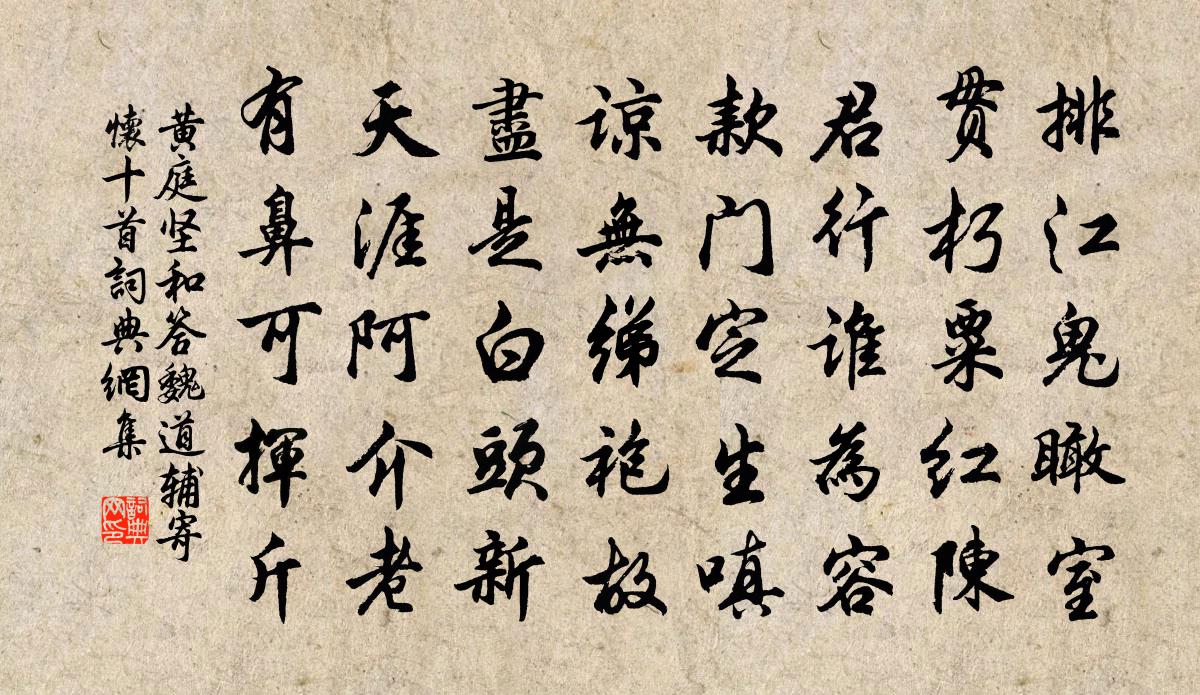 排江鬼瞰室
贯朽粟红陳
君行谁為容
款门定生嗔
谅無绨袍故
盡是白頭新
天涯阿介老
有鼻可揮斤
黄庭坚和答魏道辅寄
懷十首詞典網集
詞典
网印